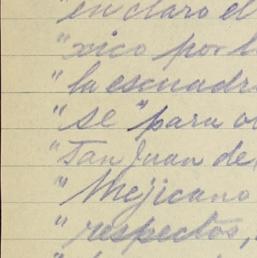 "en claro el
"xico por l
"la escuadr
"se "para o
"San Juan de
"Mejicano
"respectos,